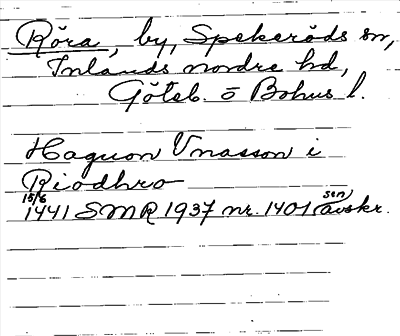 Röra, by, Spekeröds sn,
Inlands nordre hd,
Göteb. o Bohus l.
Haquon Unasson i
Riodhro
15/6 1441 SMR 1937 nr. 1401 (sen) avskr.